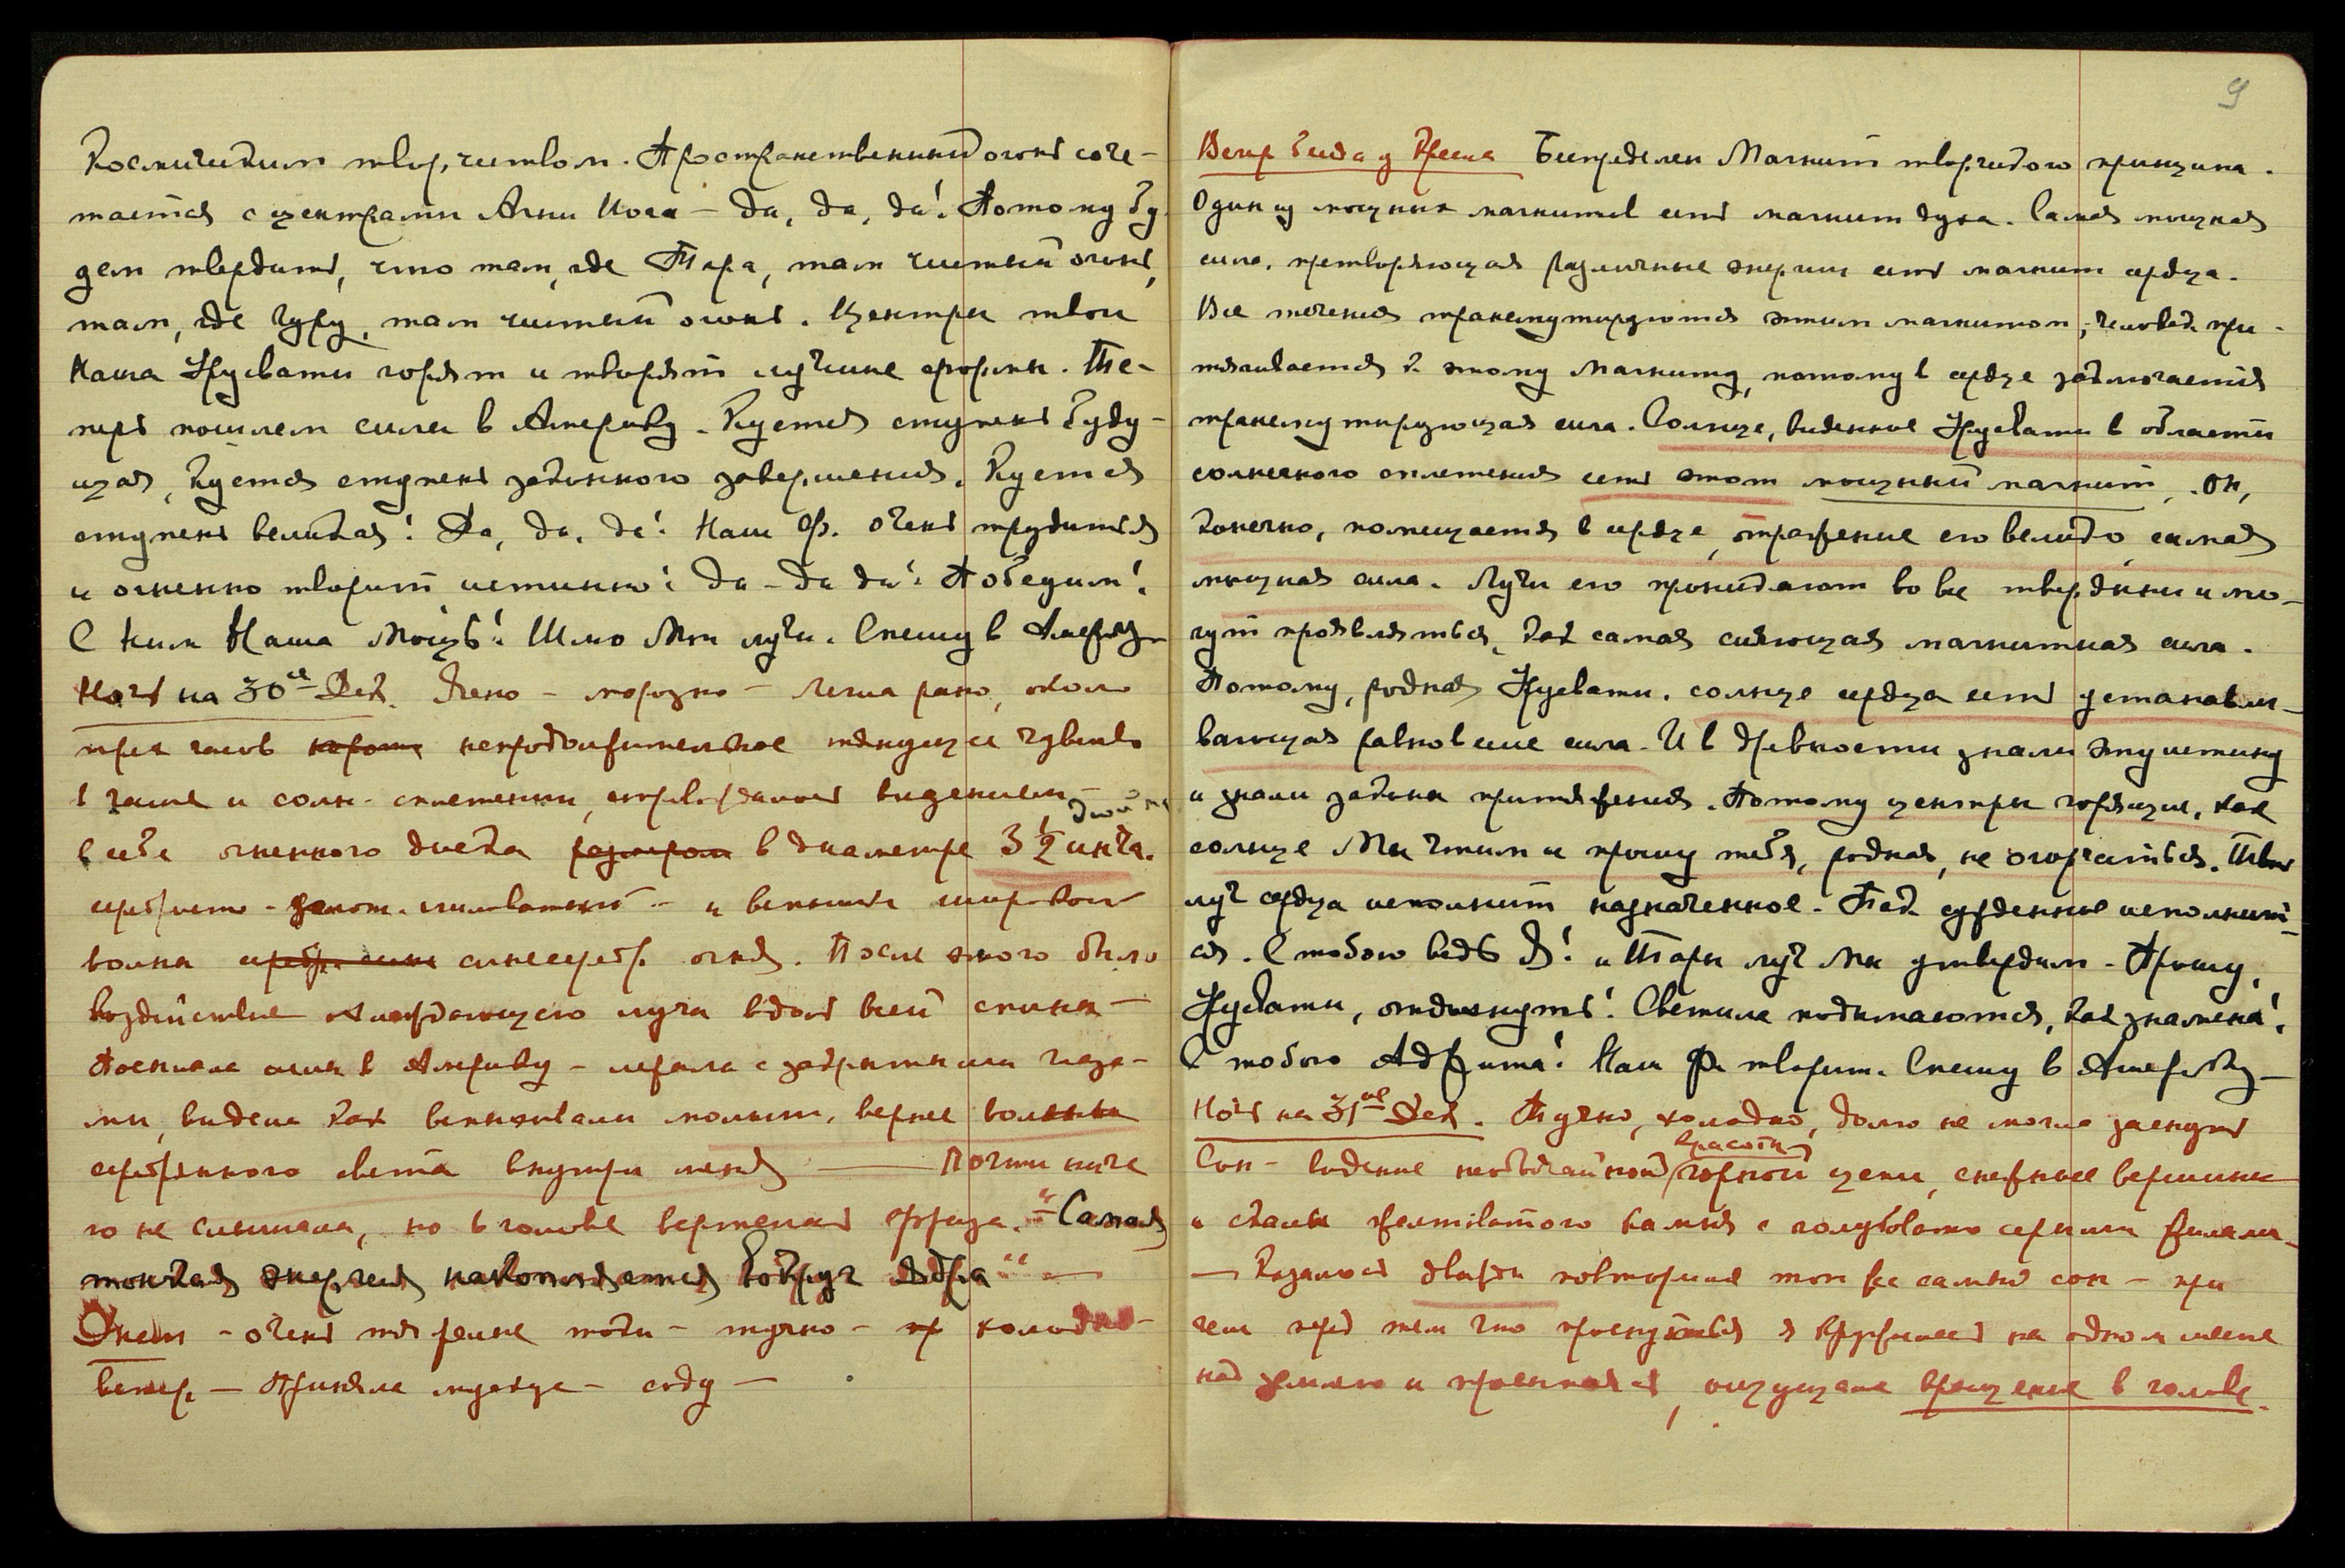 Космическим творчеством. Пространственный огонь соче-
тается с центрами Агни Йога — да, да, да! Потому бу-
дем твердить, что там, где Тара, там чистый огонь,
там, где Гуру, там чистый огонь. Центры твои
Наша Урусвати горят и творят лучшие формы. Те-
перь пошлем силы в Америку. Куется ступень буду-
щая, куется ступень законного завершения. Куется
ступень великая! Да, да, да! Наш Ф. очень трудится
и огненно творит истинно! Да - да да! Победим!
С ним Наша Мощь! Шлю Мои лучи. Спешу в Америку
Ночь на 30ое Дек. Ясно — морозно — легла рано, около
трех часов непродолжительное тянущее чувство
в чаше и солн. сплетении, сопровождалось видением —
двойн
в себе огненного диска размером в диаметре 3 ½ инча.
серебристо - лиловатый — и вспышки широкой
волны серебр. синие синесеребр. огня. После этого было
воздействие охлаждающего луча вдоль всей спины —
Посылала силы в Америку — лежала с закрытыми глаза-
ми, видела как вспыхивали молнии, вернее волны
серебряного света внутри меня — Почти ниче
го не слышала, но в голове вертелась фраза. — "Самая
тонкая энергия накопляется вокруг ядра" —
Днем — очень тяжелые токи — тучно — холодно —
ветер — Приняла мускус — соду —
9
Вечер Беседа у Кресла Беспределен Магнит творческого принципа.
Один из мощных магнитов есть магнит духа. Самая мощная
сила, претворяющая различные энергии есть магнит сердца.
Все течения трансмутируются этим магнитом, человек при-
тягивается к этому Магниту, потому в сердце заключается
трансмутирующая сила. Солнце, виденное Урусвати в области
солнечного сплетения есть этот мощный магнит. Он,
конечно, помещается в сердце, отражение его велико, самая
мощная сила. Лучи его проникают во все твердыни и мо-
гут проявляться, как самая сияющая магнитная сила.
Потому, родная Урусвати, солнце сердца есть устанавли-
вающая равновесие сила. И в древности знали эту истину
и знали законы притяжения. Потому центры горящие, как
солнце Мы чтим и прошу тебя, родная, не огорчаться. Твой
луч сердца исполнит назначенное. Так сужденное исполнит-
ся. С тобою ведь Я! и Тары луч Мы утвердим. Прошу,
Урусвати, отдохнуть! Светила подымаются, как знамена!
С тобою Адрита! Наш Ф. творит. Спешу в Америку —
Ночь на 31ое Дек. Тучно, холодно, долго не могла заснуть
красоты
Сон — видение необычайной горной цепи, снежные вершины
и скалы желтоватого камня с голубовато серыми жилами.
— Казалось дважды повторился тот же самый сон — при
чем перед тем что проснуться я кружилась на одном месте
над землею и проснулась, ощущая вращение в голове.